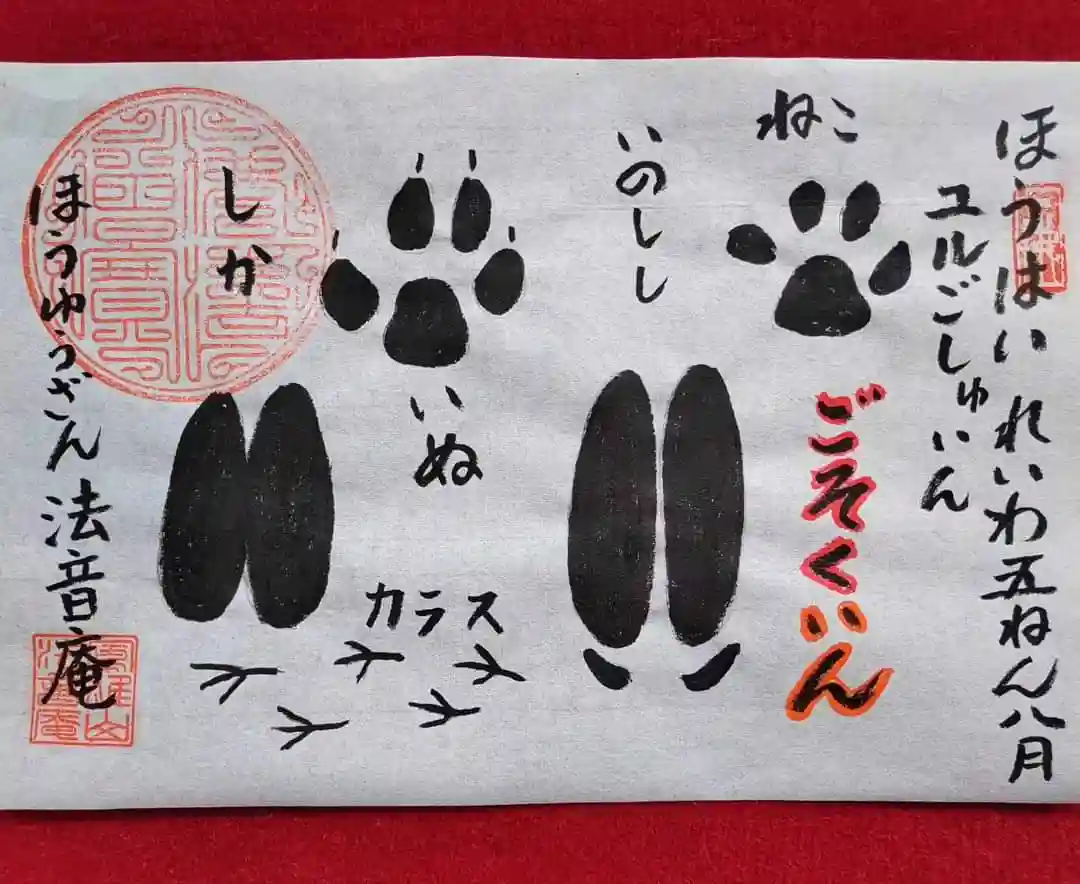 ほうはい れいわ五ねん八月
ユルごしゅいん
ねこ
ごそくいん
いのしし
いぬ
カラス
しか
ほうゆうざん 法音庵